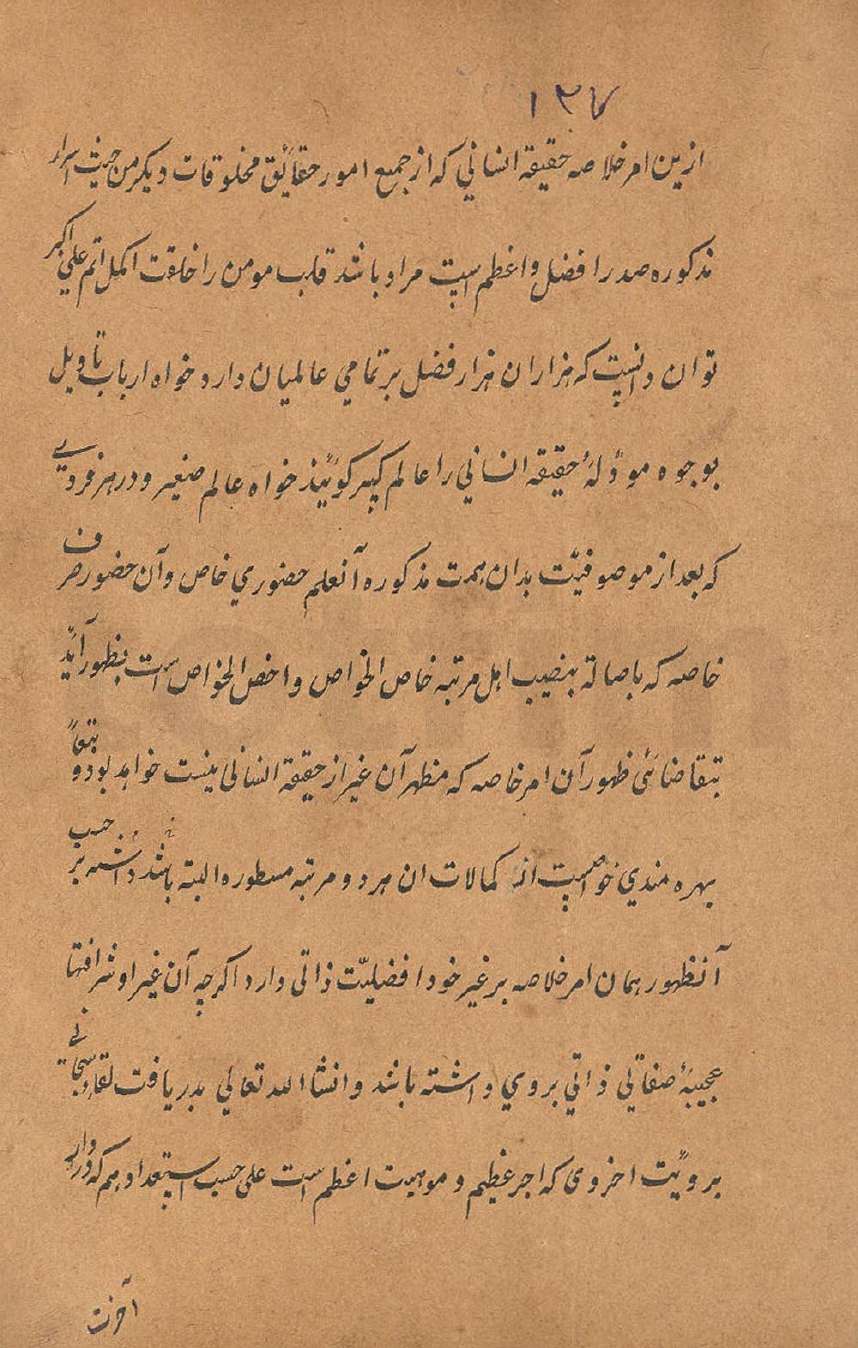 ۱۳۷
ازین امر خلاصه حقیقة انسانی که از جمیع امور حقائق مخلوقات دیگر من حیث اسرار
مذکوره صدر افضل و اعظم است مراد باشد قلب مومن را خلقت اکمل اتم علی اکبر
توان دانست که هزاران هزار فضل بر تمامی عالمیان دارد خواه ارباب تاویل
بوجوه مؤلهٔ حقیقة انسانی را عالم کبیر گویند خواه عالم صغیر و در هر فردیے
که بعد از موصوفیّت بدان همت مذکوره آنعلم حضوري خاص و آن حضور صرف
خاصه که باصالة بنصیب اهل مرتبه خاص الخواص و اخص الخواص است بظهور آید
بتقاضائی ظهور آن امر خاصه که مظهر آن غیر از حقیقة انسانی نیست خواهد بود و تبعاً
بهره مندي خواصیت از کمالات ان هر دو مرتبه مسطوره البته باشد داشته بر حسب
آنظهور همان امر خلاصه بر غیر خود افضلیّت ذاتی دارد اگرچه آن غیر او شرافتها
عجیبهٔ صفاتی ذاتي بروي داشته باشد و انشا الله تعالی بدریافت لقاء سبحانی
برویّت اخروی که اجر عظیم و موهبت اعظم است علی حسب استعداد هم که در دار
آخرت